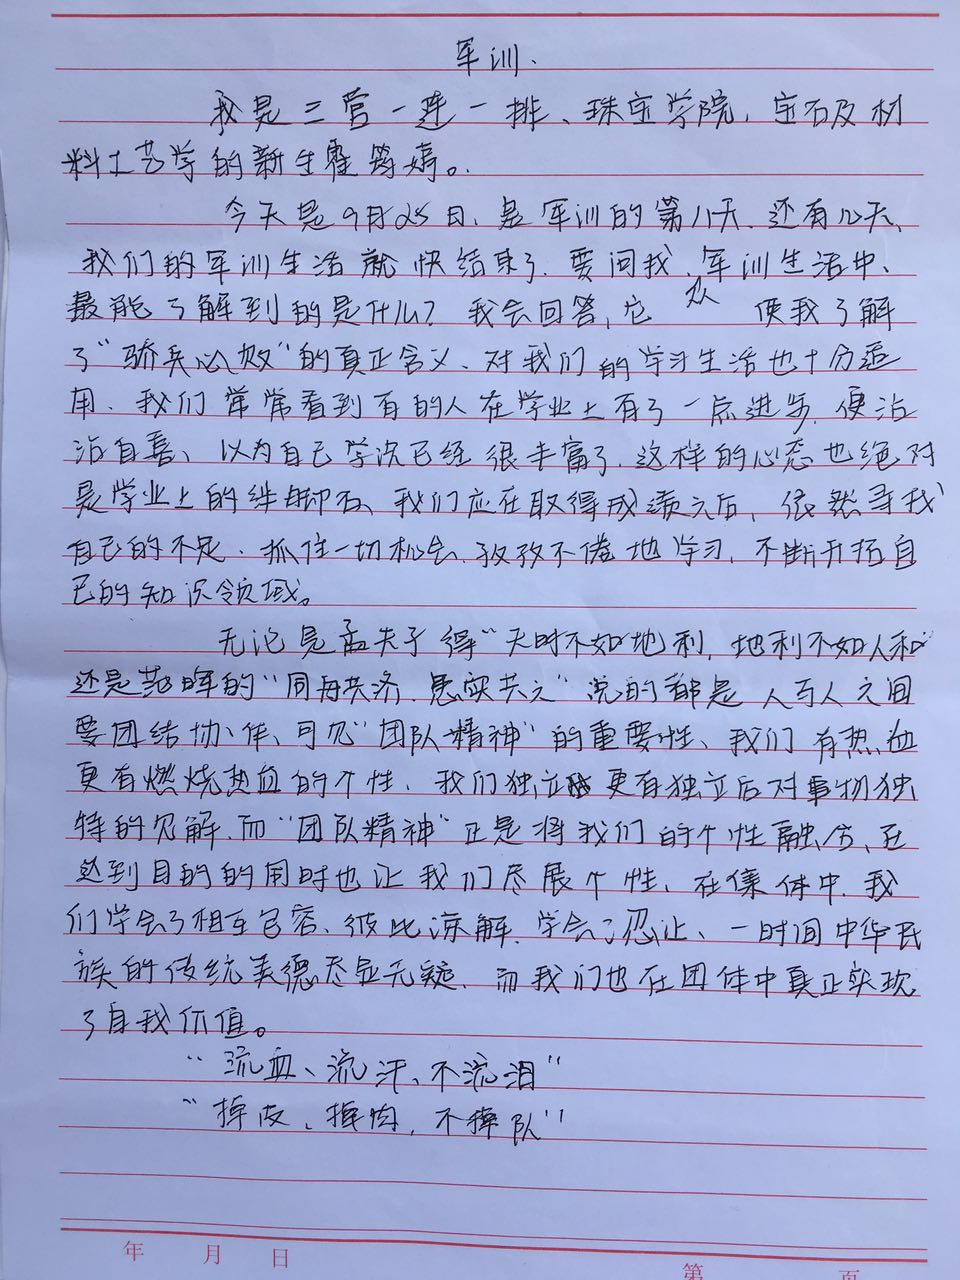 军训.
我是三营一连一排、珠宝学院,宝石及材
料工艺学的新生霍筠嫡。
今天是9月25日、是军训的第八天.还有几天、
我们的军训生活就快结束了.要问我、军训生活中、
最能了解到的是什么?我会回答,它 从 使我了解
了“骄兵必败”的真正含义、对我们的学习生活也十分适
用、我们常常看到有的人在学业上有了一点进步,便沾
沾自喜、以为自己学识已经很丰富了.这样的心态也绝对
是学业上的绊脚石、我们应在取得成绩之后,依然寻找
自己的不足.抓住一切机会、孜孜不倦地学习,不断开拓自
己的知识领域。
无论是孟夫子得“天时不如地利,地利不如人和
还是范晔的“同舟共济.患实共之”说的都是人与人之间
要团结协作、可见“团队精神”的重要性、我们有热血
更有燃烧热血的个性、我们独立 更有独立后对事物独
特的见解.而“团队精神”正是将我们的个性融合、在
达到目的的同时也让我们尽展个性、在集体中.我
们学会了相互包容、彼此谅解.学会了忍让、一时间中华民
族的传统美德尽显无疑.而我们也在团体中真正实现
了自我价值。
“流血、流汗、不流泪”
“掉皮、掉肉,不掉队”
年 月 日
第 页